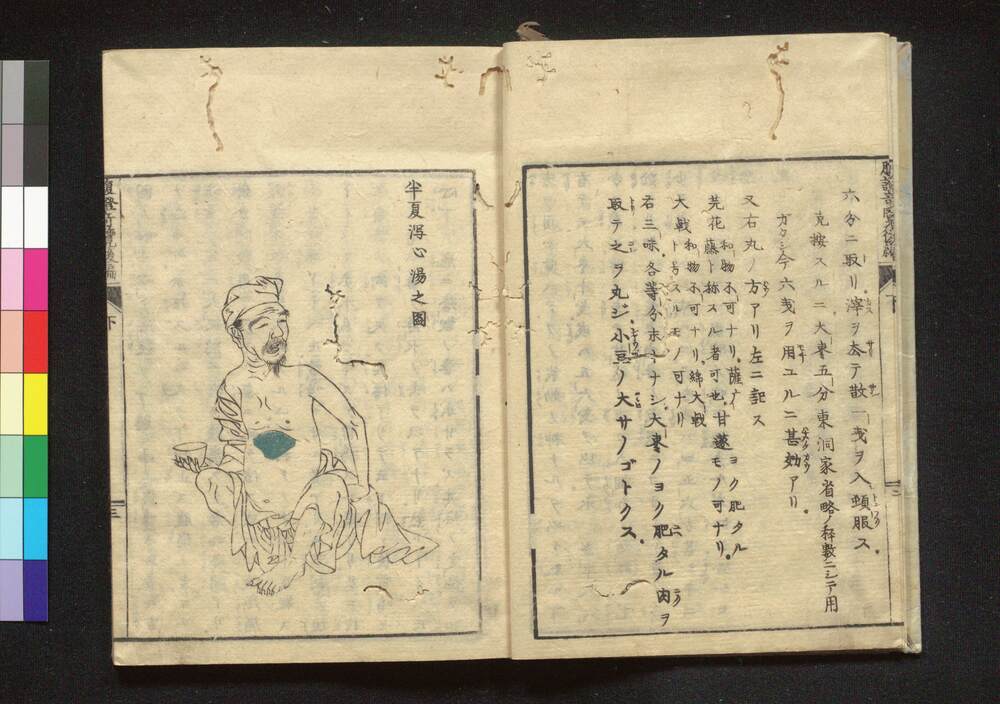 腹證奇覽後編
下
六分ニ取リ滓ヲ去テ散一戔ヲ入頓服ス。
克按スルニ大棗五分東洞家省略ノ秤數ニシテ用
ガタシ今六戔ヲ用ユルニ甚効アリ。
又右丸ノ方アリ左ニ記ス
芫花 和物不可ナリ。薩广
藤ト称スル者可也。甘遂 ヨク肥タル
モノ可ナリ。
大戟 和物不可ナリ綿大戟
ト号スルモノ可ナリ
右三味各等分末トナシ大棗ノヨク肥タル肉ヲ
取テ之ヲ丸ジ小豆ノ大サノゴトクス。
半夏瀉心湯之圖
腹證奇覽後編
下
三